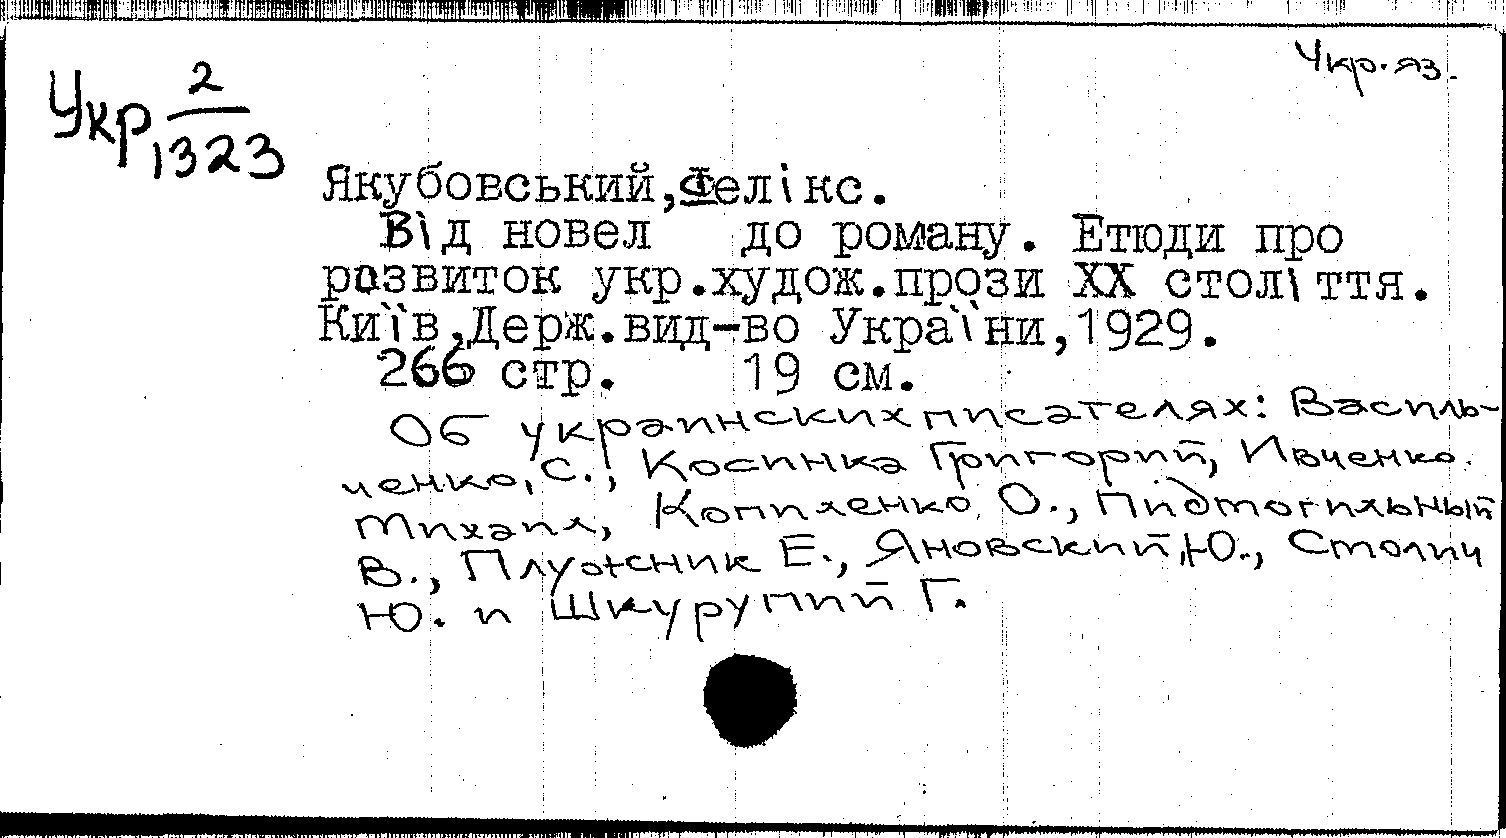 Укр.яз.
Укр 2
1323
Якубовський,Фелікс.
Від новел до роману. Етюди про
розвиток укр.худож.прози ХХ століття.
Київ,Держ.вид-во України,1929.
266 стр. 19 см.
Об украинских писателях: Василь-
ченко, С., Косинка Григорий, Ивченко
Михаил, Копиленко О., Пидмогильный
В., Плужник Е., Яновский,Ю., Столич
Ю. и Шкурупий Г.